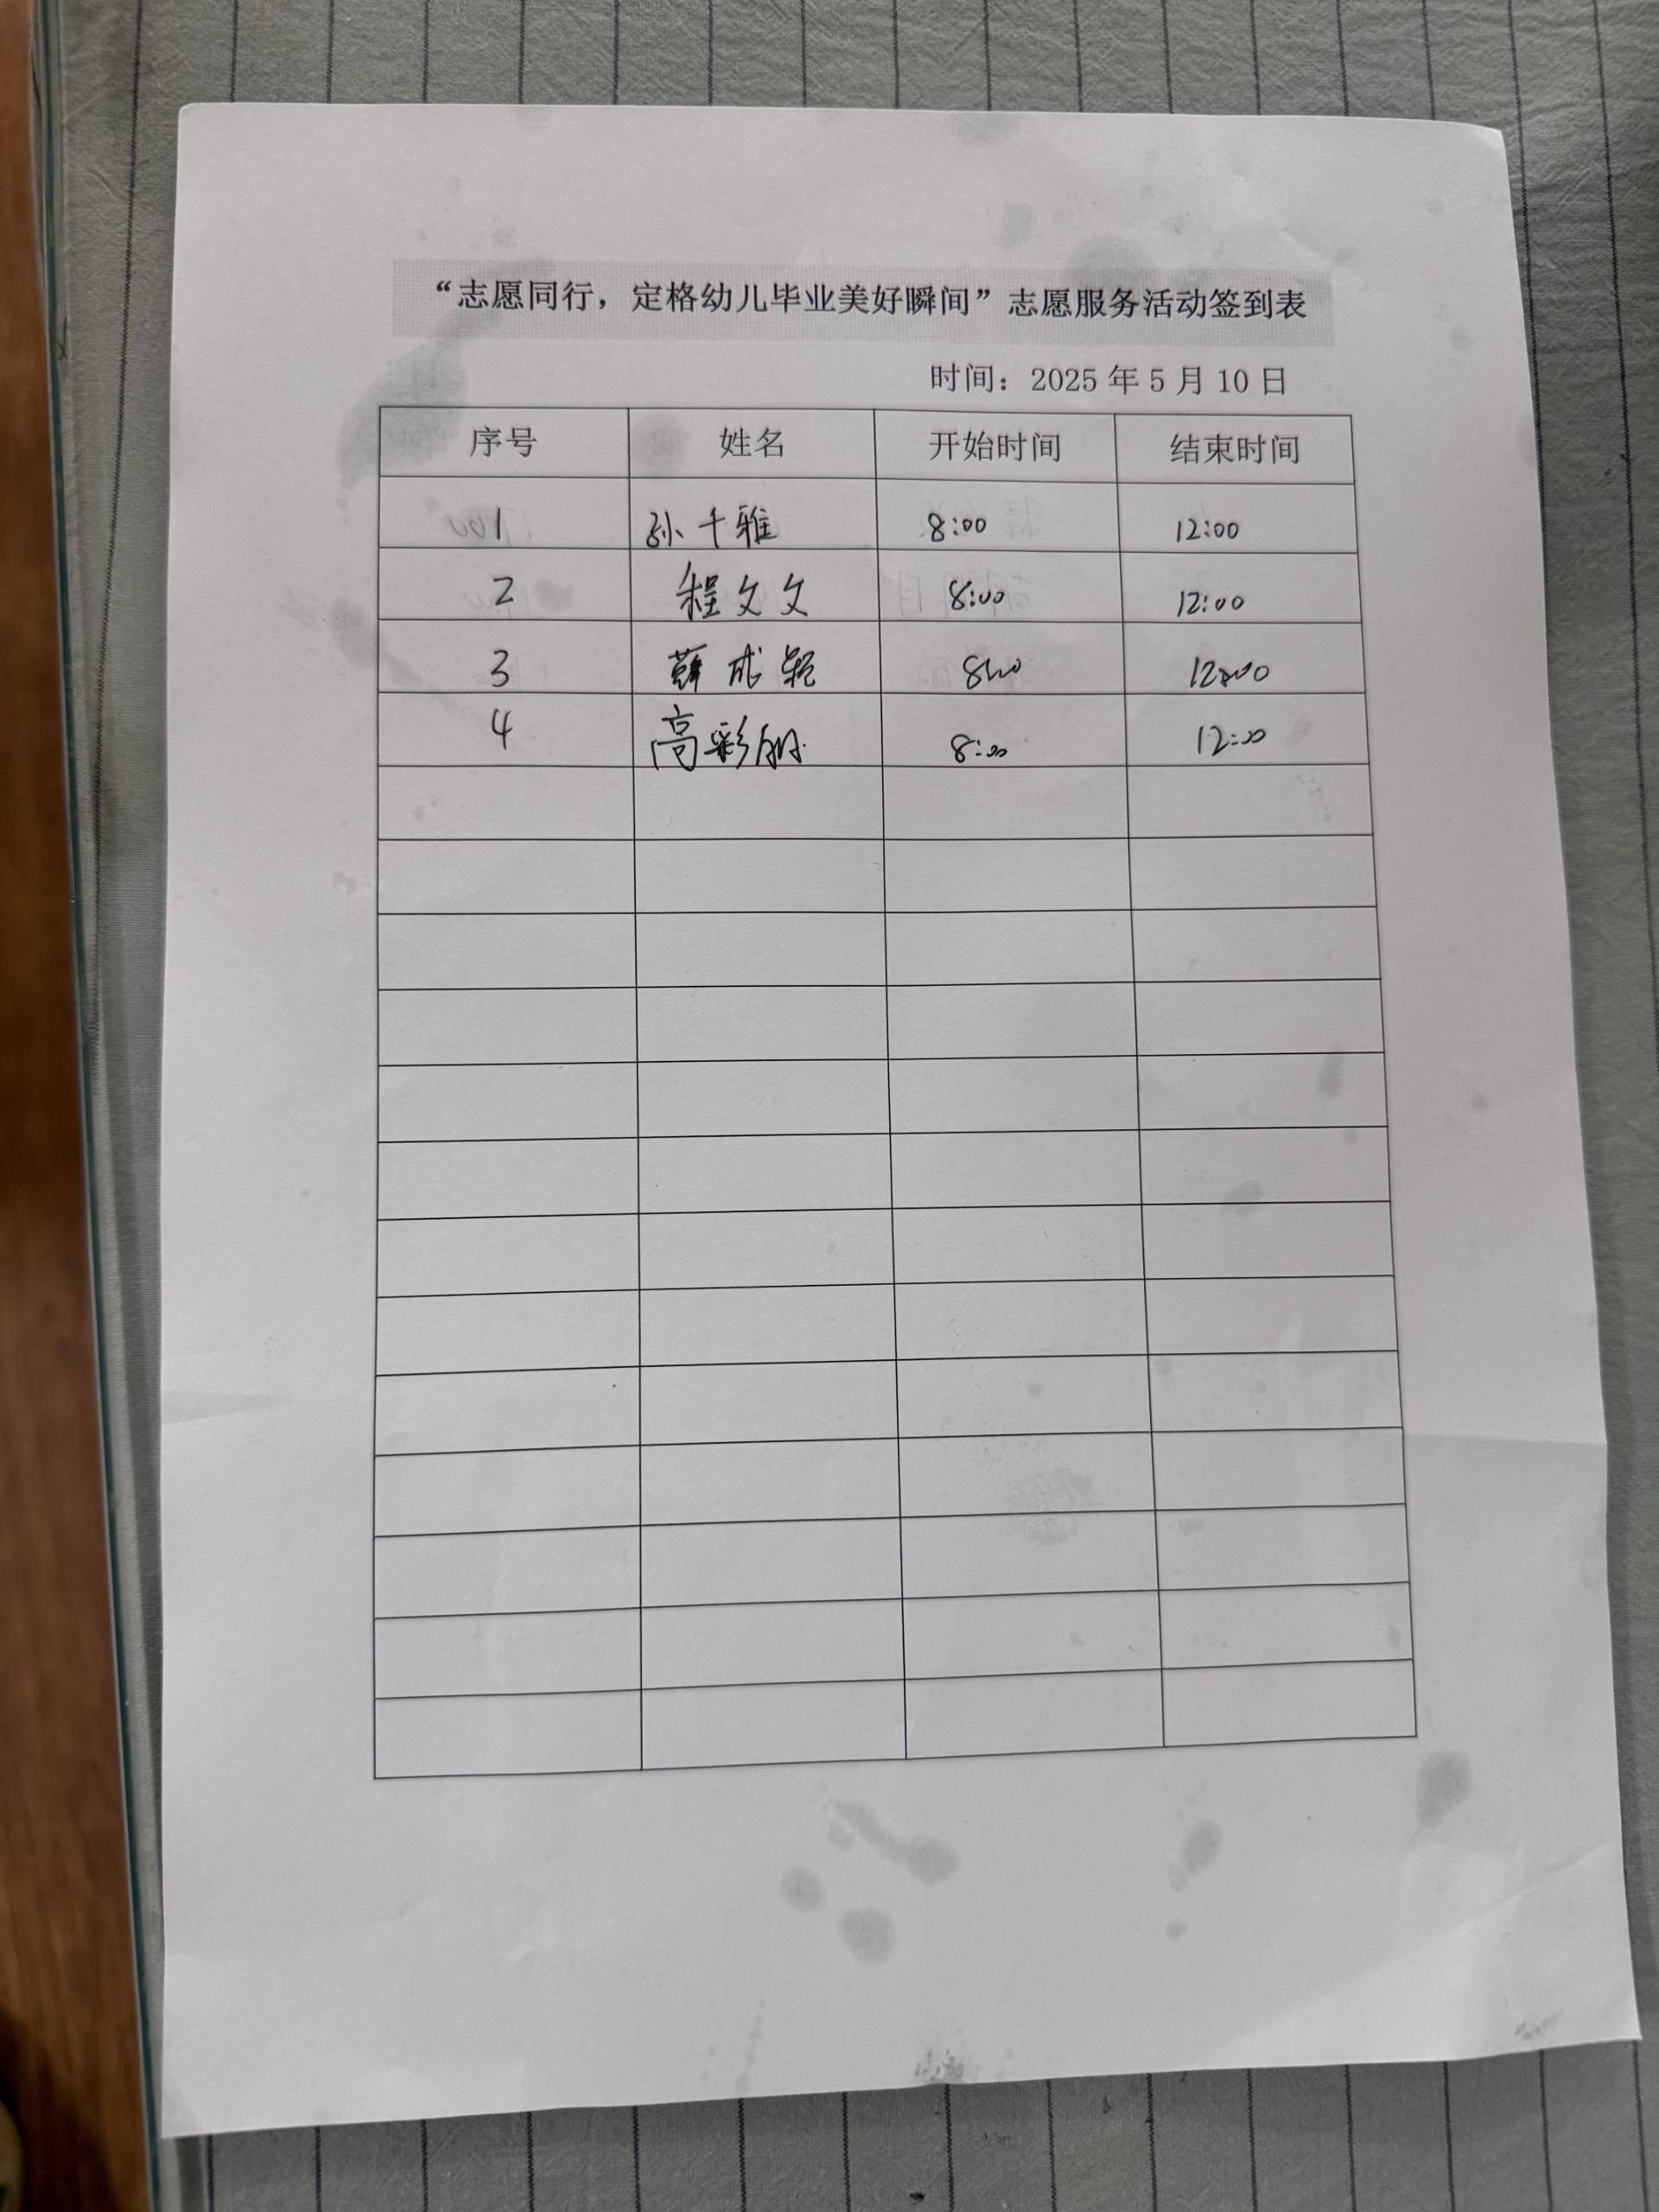 “志愿同行，定格幼儿毕业美好瞬间”志愿服务活动签到表
时间：2025年5月10日
序号 姓名 开始时间 结束时间
1 孙千雅 8:00 12:00
2 程文文 8:00 12:00
3 薛成艳 8:00 12:00
4 高彩丽 8:00 12:00